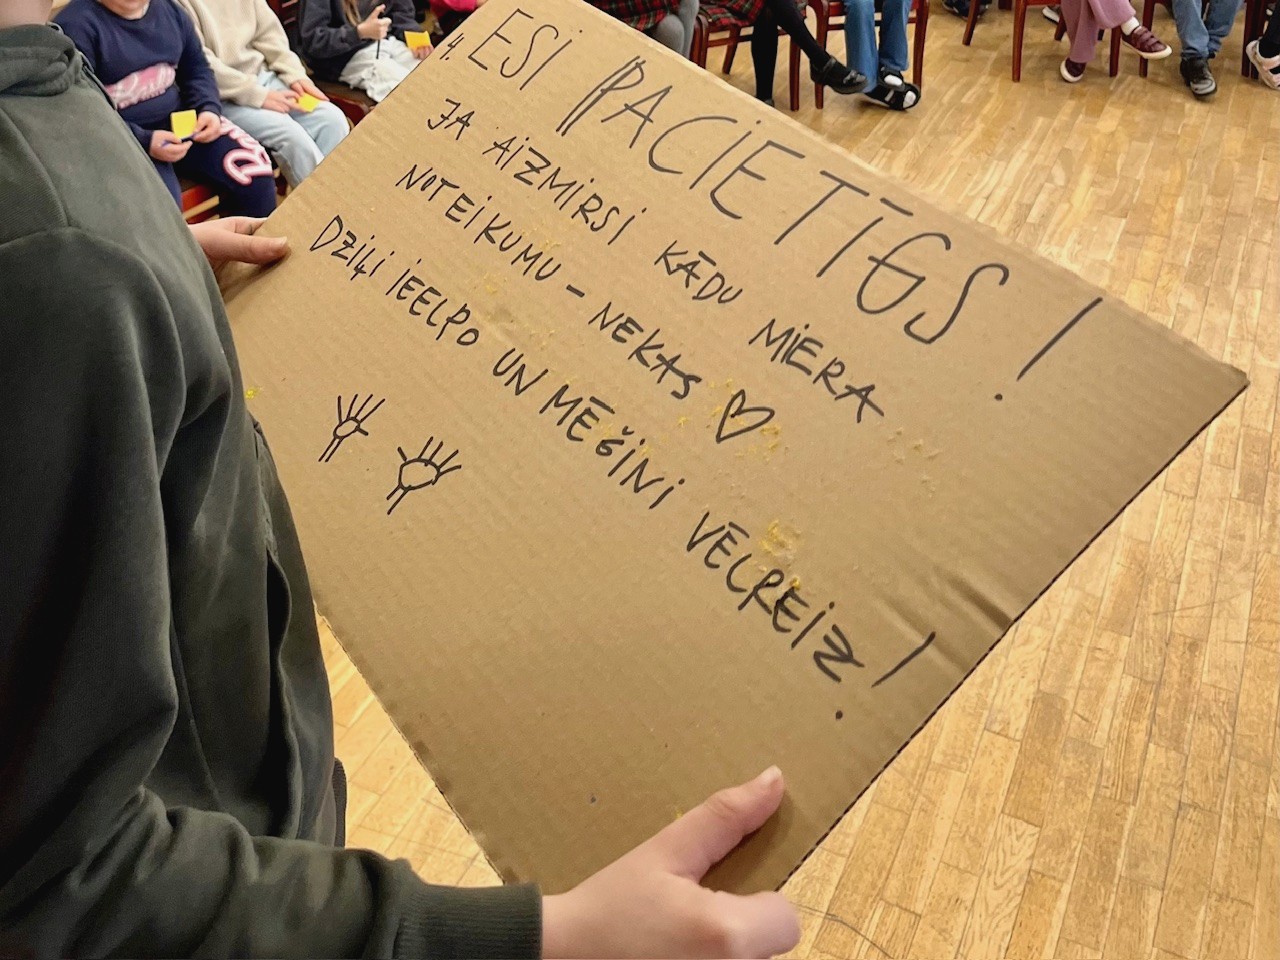 4. ESI PACIETĪGS!
JA AIZMIRSI KĀDU MIERA
NOTEIKUMU - NEKAS ♡
DZIĻI IEELPO UN MĒĢINI VĒLREIZ!